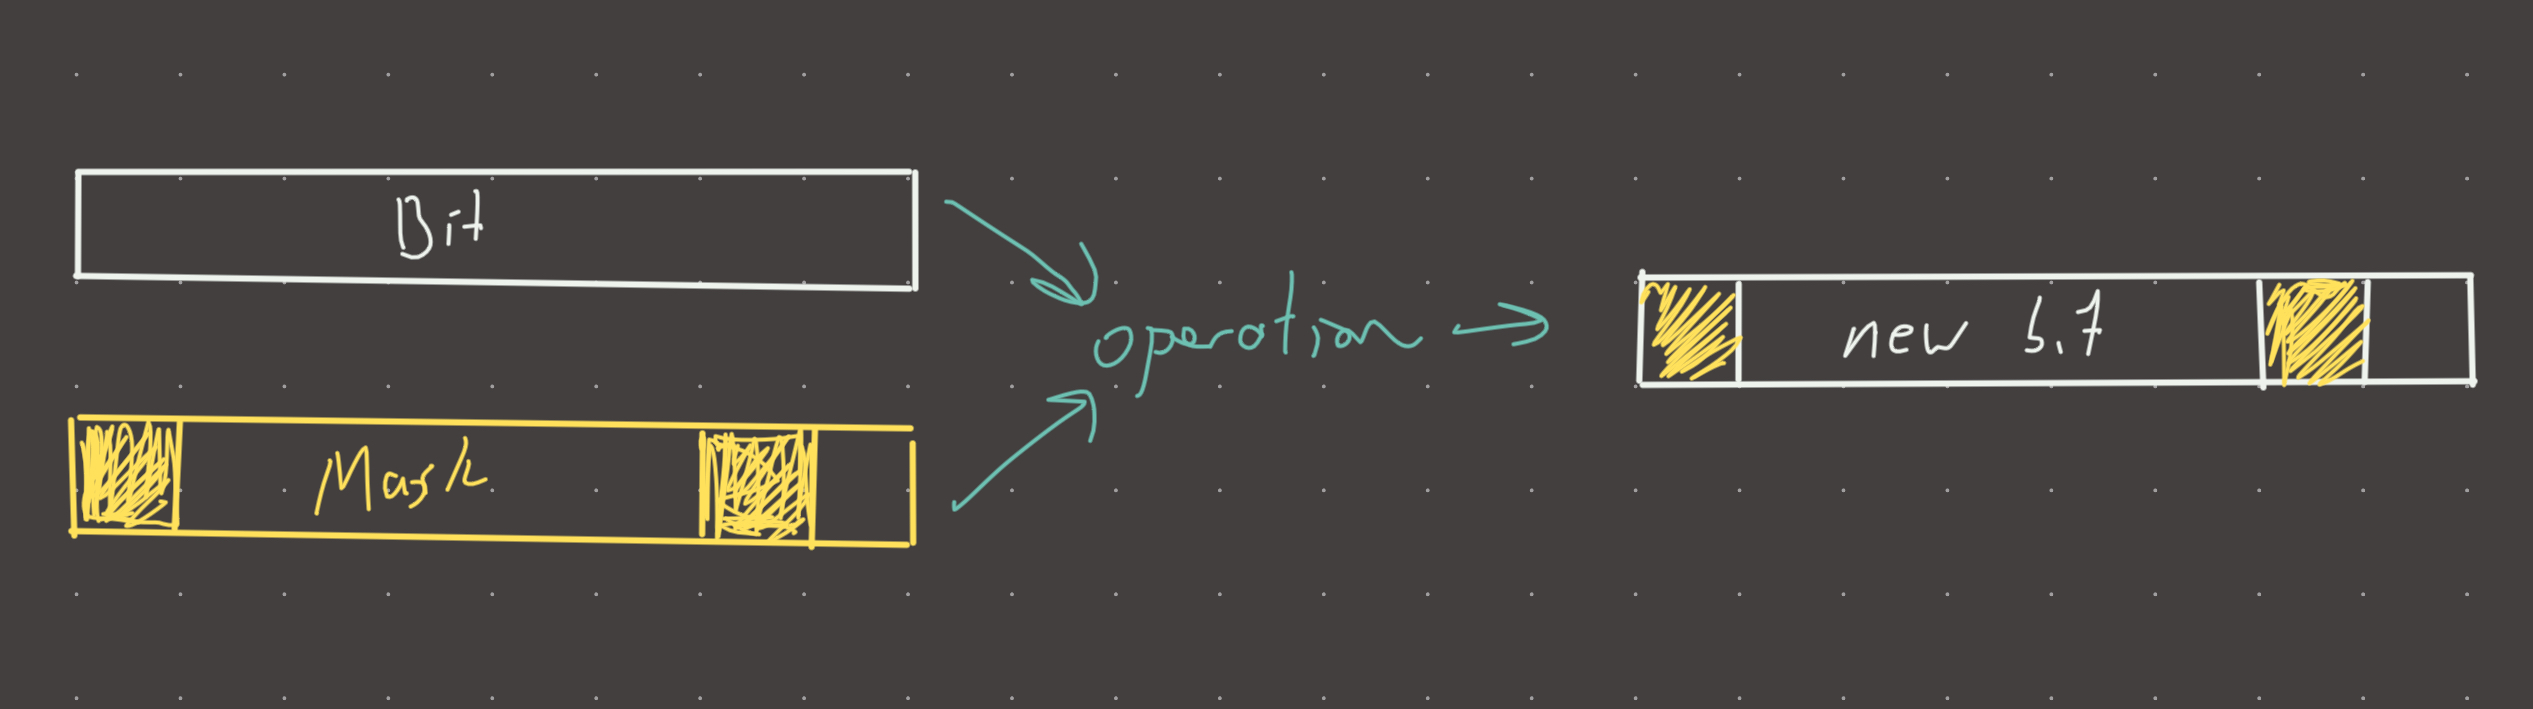 Bit
Mask
operation
new bit